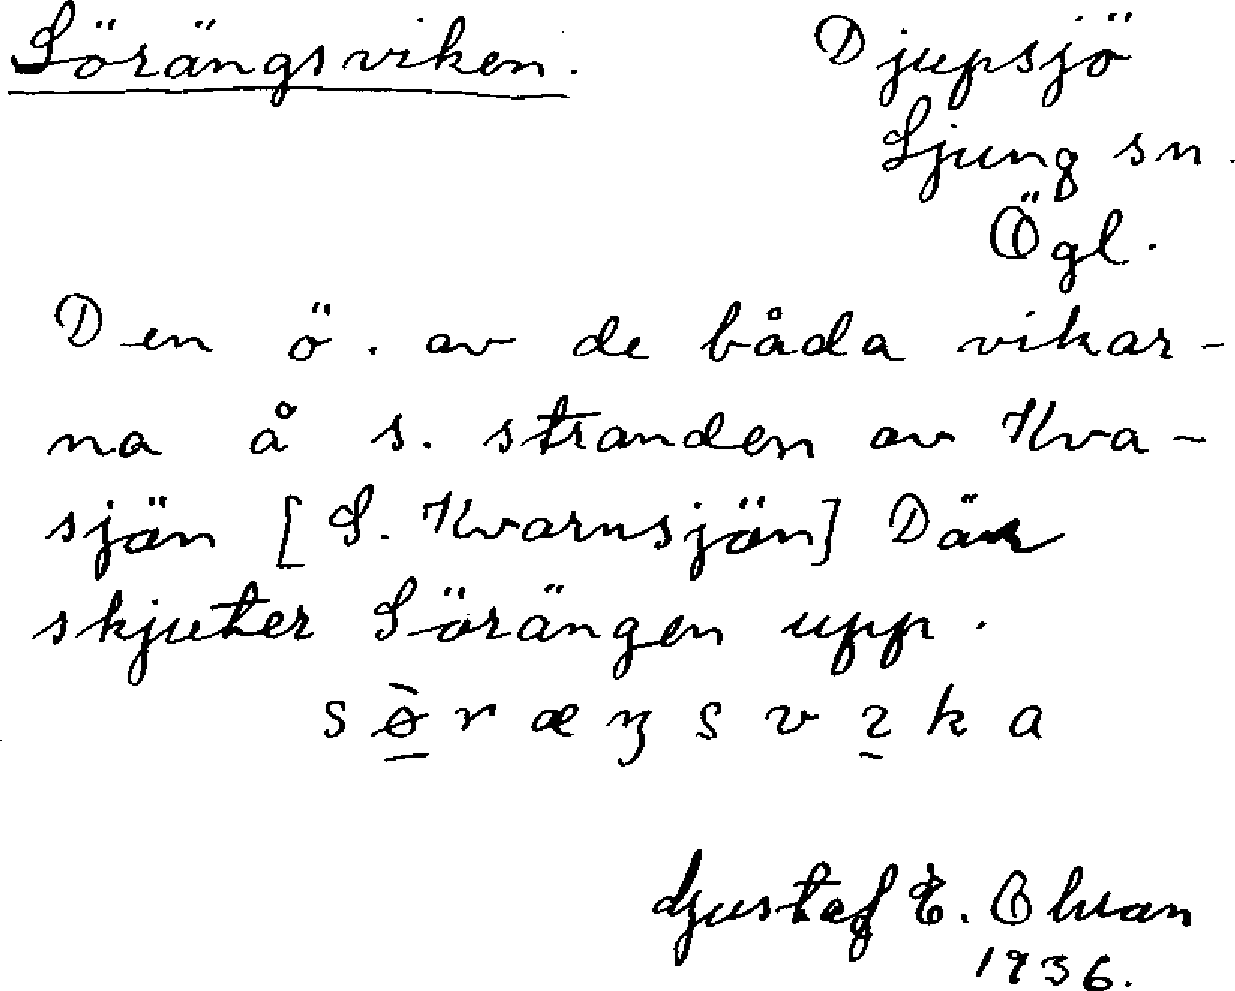 Sörängsviken.
Djupsjö
Ljung sn.
Ögl.
Den ö. av de båda vikar-
na å s. stranden av Kva-
sjön [S. Kvarnsjön] Där
skjuter Sörängen upp.
sø̀ræŋsvɩka
Gustaf E. Olson
1936.